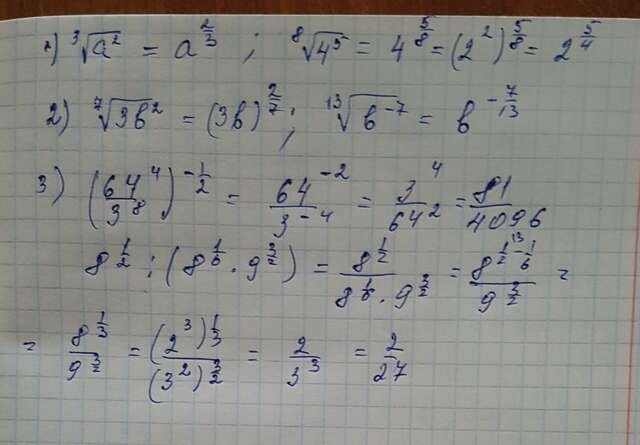 1) ³√a² = a^(2/3) ; ⁸√4⁵ = 4^(5/8) = (2²)^(5/8) = 2^(5/4)
2) ⁷√3b² = (3b)^(2/7) ; ¹³√b⁻⁷ = b^(-7/13)
3) (64⁴/3⁸)^(-1/2) = 64⁻²/3⁻⁴ = 3⁴/64² = 81/4096
8^(1/2) : (8^(1/6) · 9^(3/2)) = 8^(1/2)/(8^(1/6) · 9^(3/2)) = 8^(1/2\3 - 1/6)/9^(3/2) =
= 8^(1/3)/9^(3/2) = (2³)^(1/3)/(3²)^(3/2) = 2/3³ = 2/27